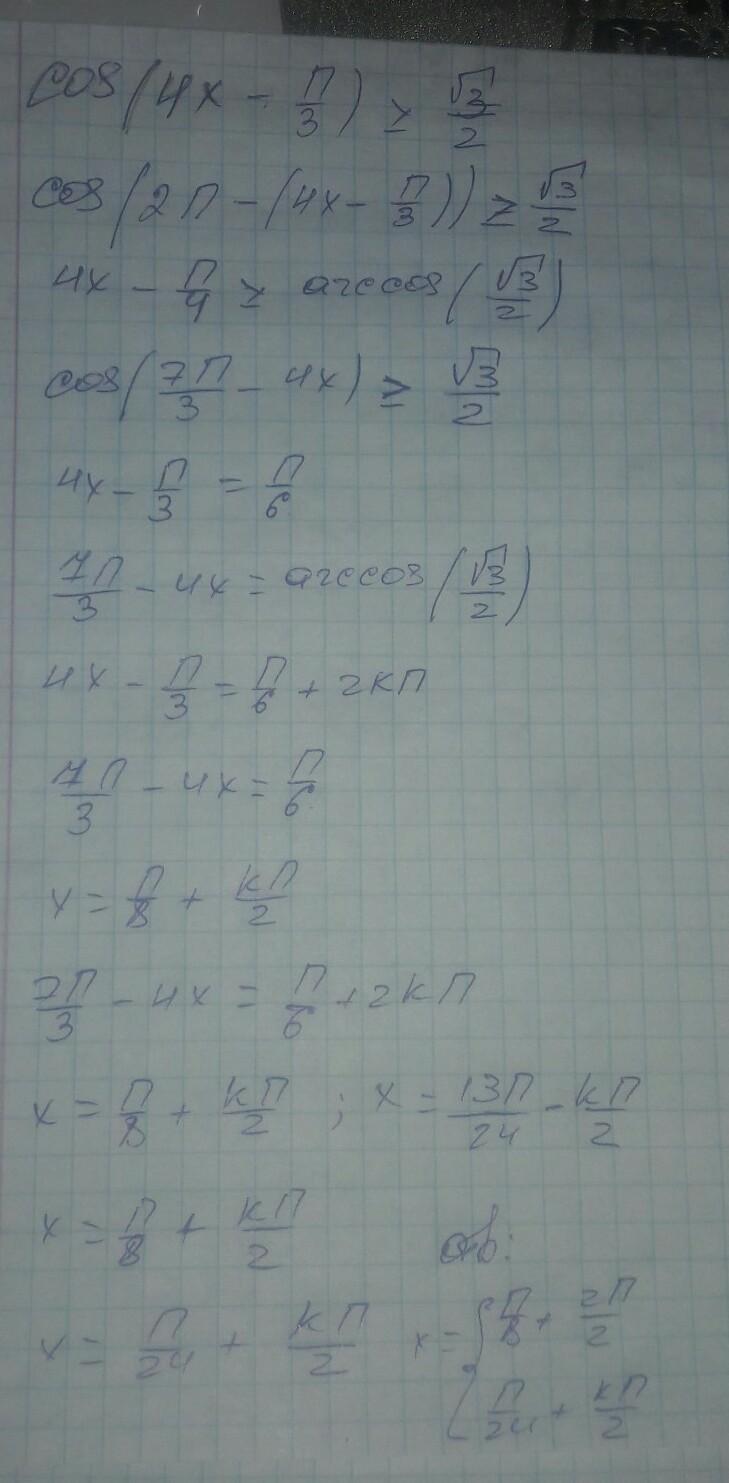 cos(4x - П/3) ≥ √3/2
cos(2П - (4x - П/3)) ≥ √3/2
4x - П/4 ≥ arccos(√3/2)
cos(7П/3 - 4x) ≥ √3/2
4x - П/3 = П/6
7П/3 - 4x = arccos(√3/2)
4x - П/3 = П/6 + 2КП
7П/3 - 4x = П/6
x = П/8 + КП/2
7П/3 - 4x = П/6 + 2КП
x = П/8 + КП/2 ; x = 13П/24 - КП/2
x = П/8 + КП/2
Отв:
x = П/24 + КП/2
x = { П/8 + 2П/2
П/24 + КП/2